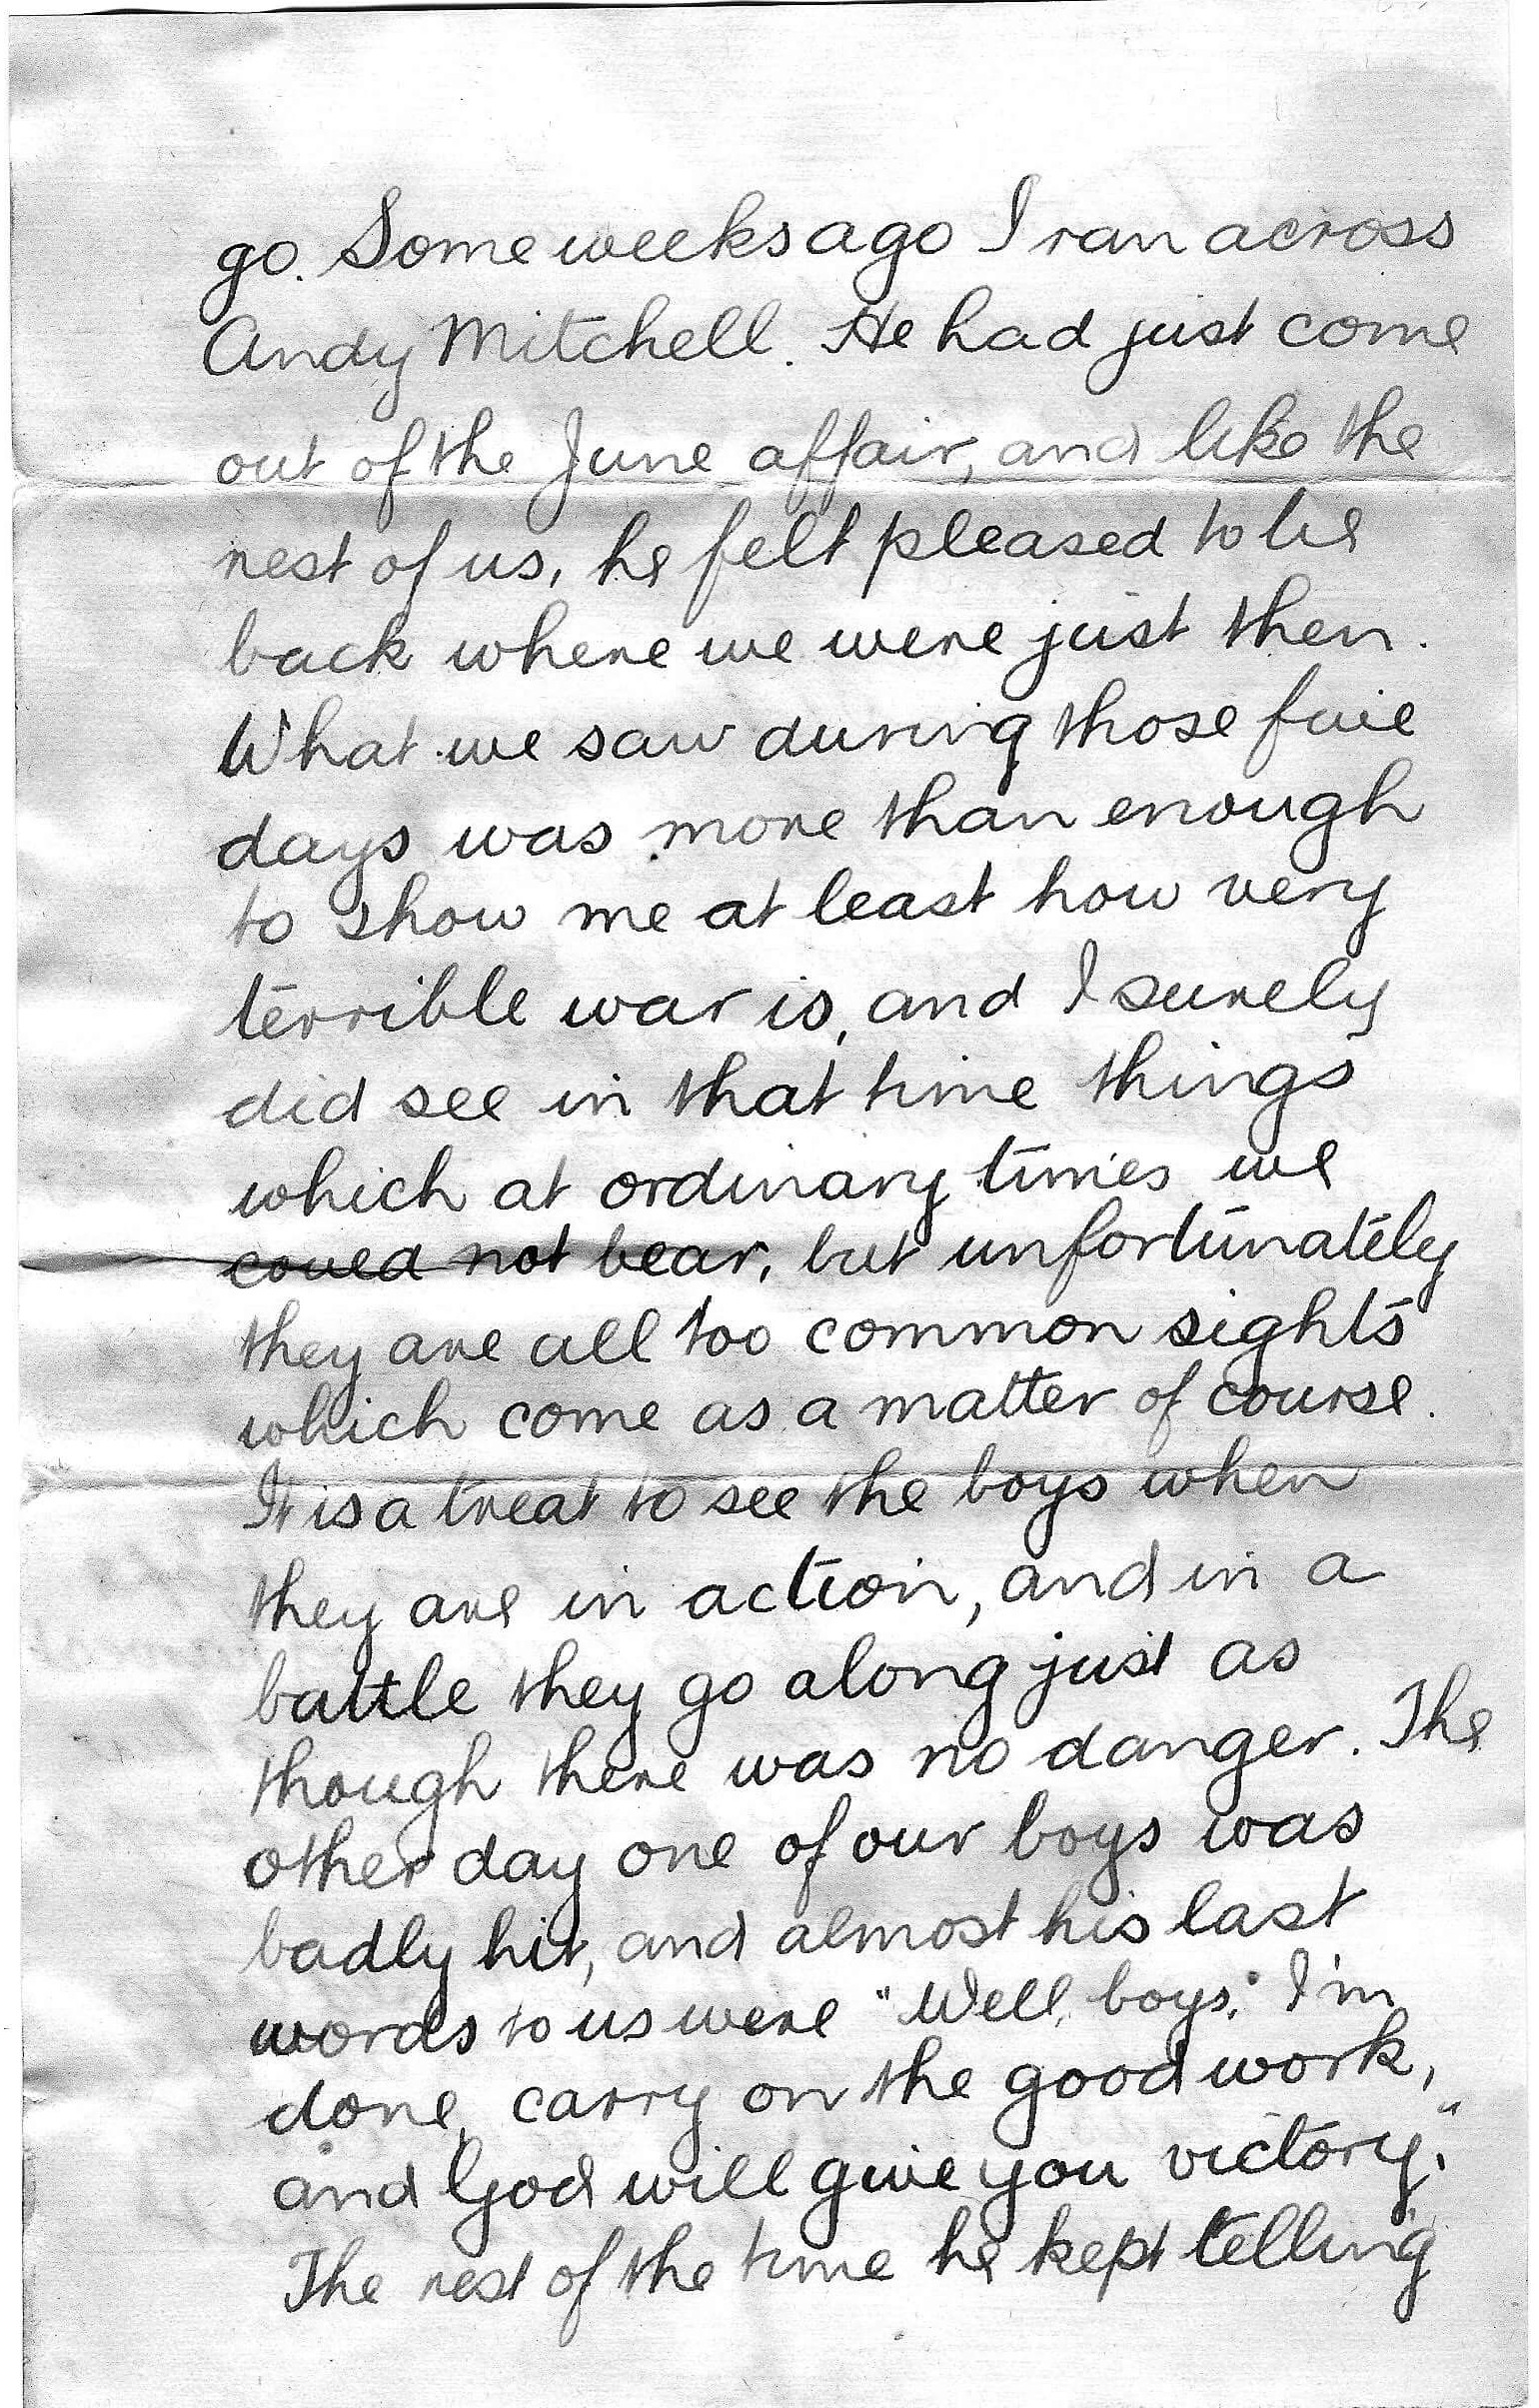 go. Some weeks ago I ran across
Andy Mitchell. He had just come
out of the June affair, and like the
rest of us, he felt pleased to be
back where we were just then.
What we saw during those five
days was more than enough
to show me at least how very
terrible war is, and I surely
did see in that time things
which at ordinary times we
could not bear, but unfortunately
they are all too common sights
which come as a matter of course.
It is a treat to see the boys when
they are in action, and in a
battle they go along just as
though there was no danger. The
other day one of our boys was
badly hit, and almost his last
words to us were "Well, boys," I'm
done, carry on the good work,
and God will give you victory."
The rest of the time he kept telling